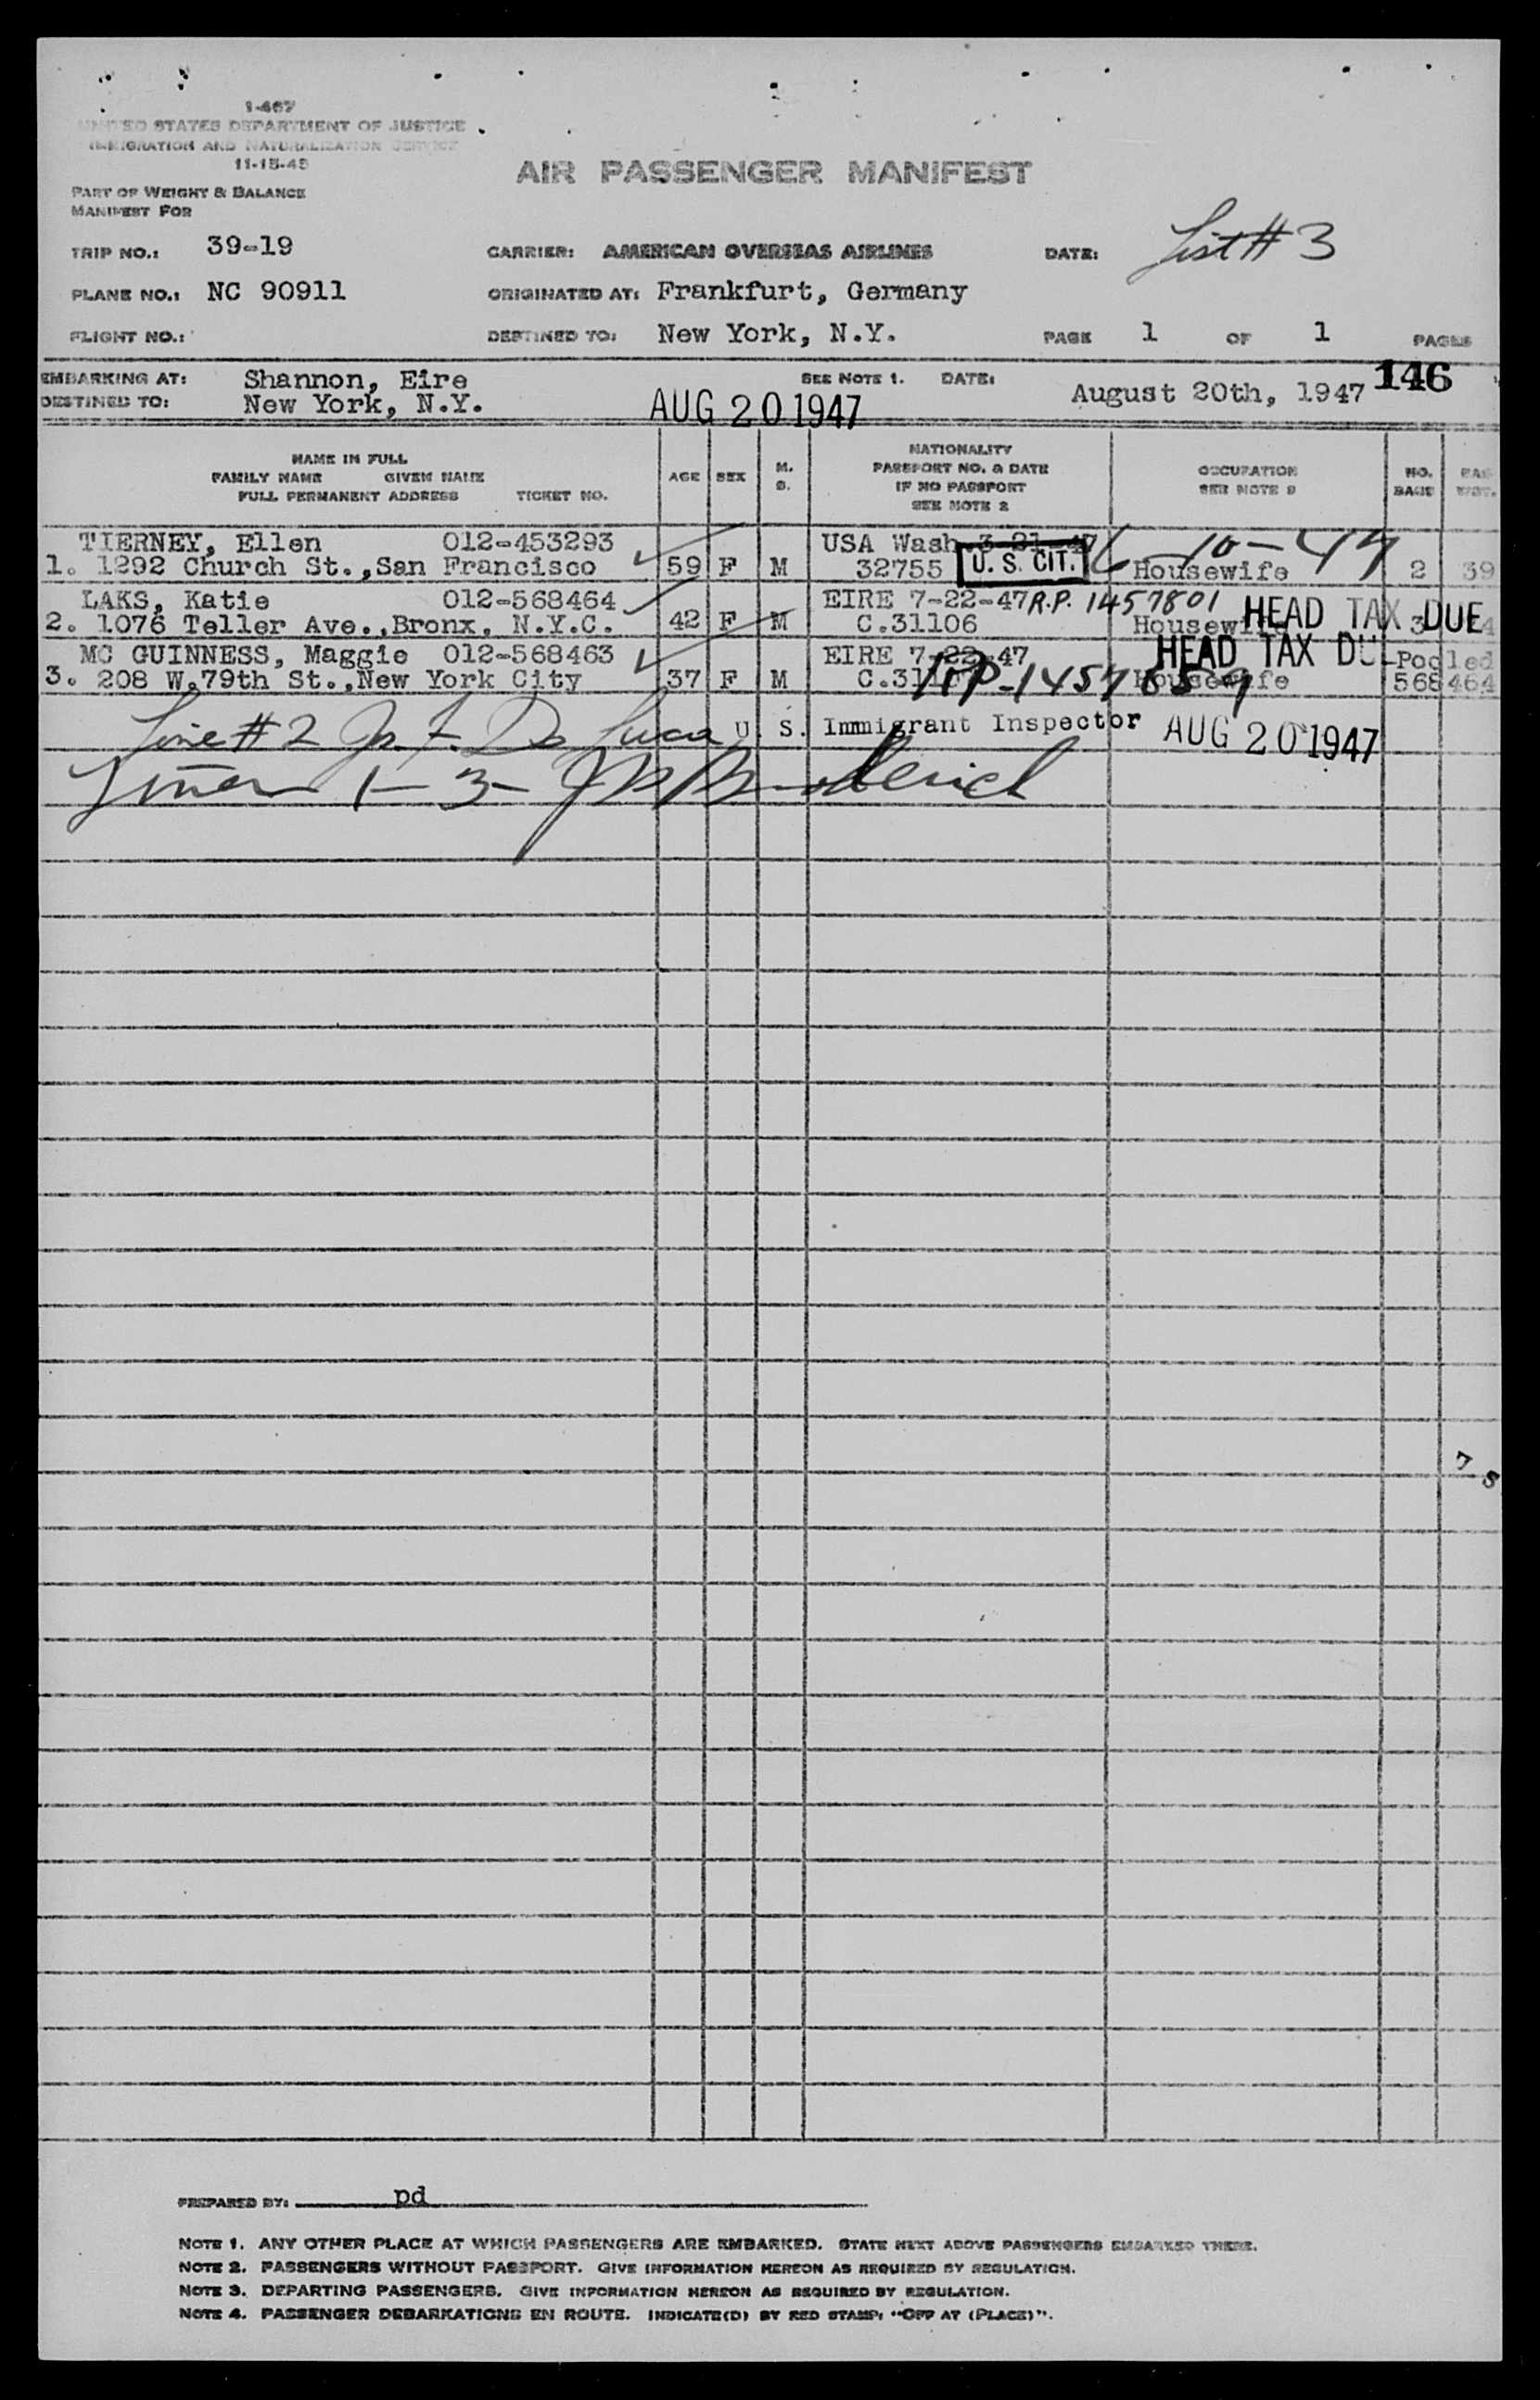 1-467
UNITED STATES DEPARTMENT OF JUSTICE
IMMIGRATION AND NATURALIZATION SERVICE
11-15-45
AIR PASSENGER MANIFEST
PART OF WEIGHT & BALANCE
MANIFEST FOR
List # 3
TRIP NO.: 39-19 CARRIER: AMERICAN OVERSEAS AIRLINES DATE:
PLANE NO.: NC 90911 ORIGINATED AT: Frankfurt, Germany
FLIGHT NO.: DESTINED TO: New York, N.Y. PAGE 1 OF 1 PAGES
EMBARKING AT: Shannon, Eire SEE NOTE 1. DATE: August 20th, 1947 146
DESTINED TO: New York, N.Y. AUG 20 1947
NAME IN FULL
FAMILY NAME GIVEN NAME
FULL PERMANENT ADDRESS TICKET NO.
AGE SEX M. S.
NATIONALITY
PASSPORT NO. & DATE
IF NO PASSPORT
SEE NOTE 2
OCCUPATION
SEE NOTE 3
NO. BAGS
TIERNEY, Ellen 012-453293 USA Wash 3-21-47
1. 1292 Church St.,San Francisco 59 F M 32755 U. S. CIT. Housewife 2 39
LAKS, Katie 012-568464 EIRE 7-22-47 R.P. 1457801 HEAD TAX DUE
2. 1076 Teller Ave.,Bronx, N.Y.C. 42 F M C.31106 Housewife 3
MC GUINNESS, Maggie 012-568463 EIRE 7-22-47 HEAD TAX DUE Pooled
3. 208 W.79th St.,New York City 37 F M Housewife 568464
Line # 2 Jo. F. De Luca U. S. Immigrant Inspector AUG 20 1947
Lines 1-3-
7 5
PREPARED BY: pd
NOTE 1. ANY OTHER PLACE AT WHICH PASSENGERS ARE EMBARKED. STATE NEXT ABOVE PASSENGERS EMBARKED THERE.
NOTE 2. PASSENGERS WITHOUT PASSPORT. GIVE INFORMATION HEREON AS REQUIRED BY REGULATION.
NOTE 3. DEPARTING PASSENGERS. GIVE INFORMATION HEREON AS REQUIRED BY REGULATION.
NOTE 4. PASSENGER DEBARKATIONS EN ROUTE. INDICATE(D) BY RED STAMP: "OFF AT (PLACE)".